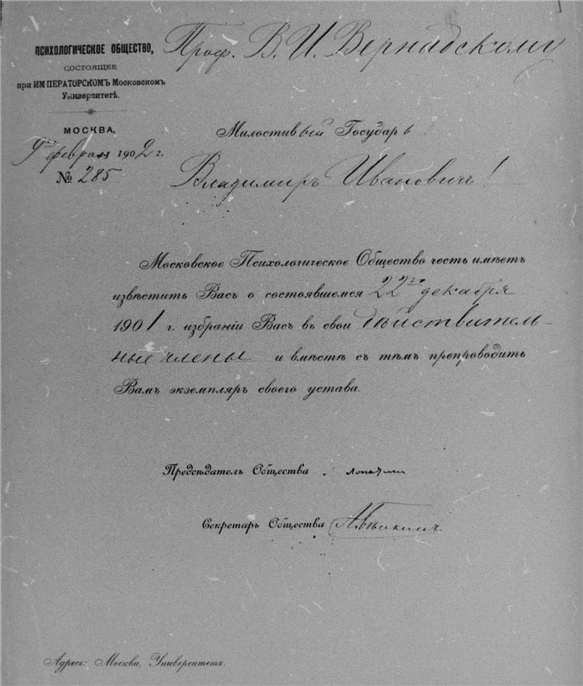 Проф. В. И. Вернадскому
ПСИХОЛОГИЧЕСКОЕ ОБЩЕСТВО,
СОСТОЯЩЕЕ
при ИМПЕРАТОРСКОМЪ Московскомъ
Университетѣ.
МОСКВА,
9го февраля 1902 г.
№ 285
Милостивый Государь
Владимиръ Ивановичъ!
Московское Психологическое Общество честь имѣетъ
извѣстить Васъ о состоявшемся 22го декабря
1901 г. избраніи Васъ въ свои дѣйствитель-
ные члены и вмѣстѣ съ тѣмъ препроводить
Вамъ экземпляръ своего устава.
Предсѣдатель Общества Лопатин
Секретарь Общества
Адресъ: Москва, Университетъ.